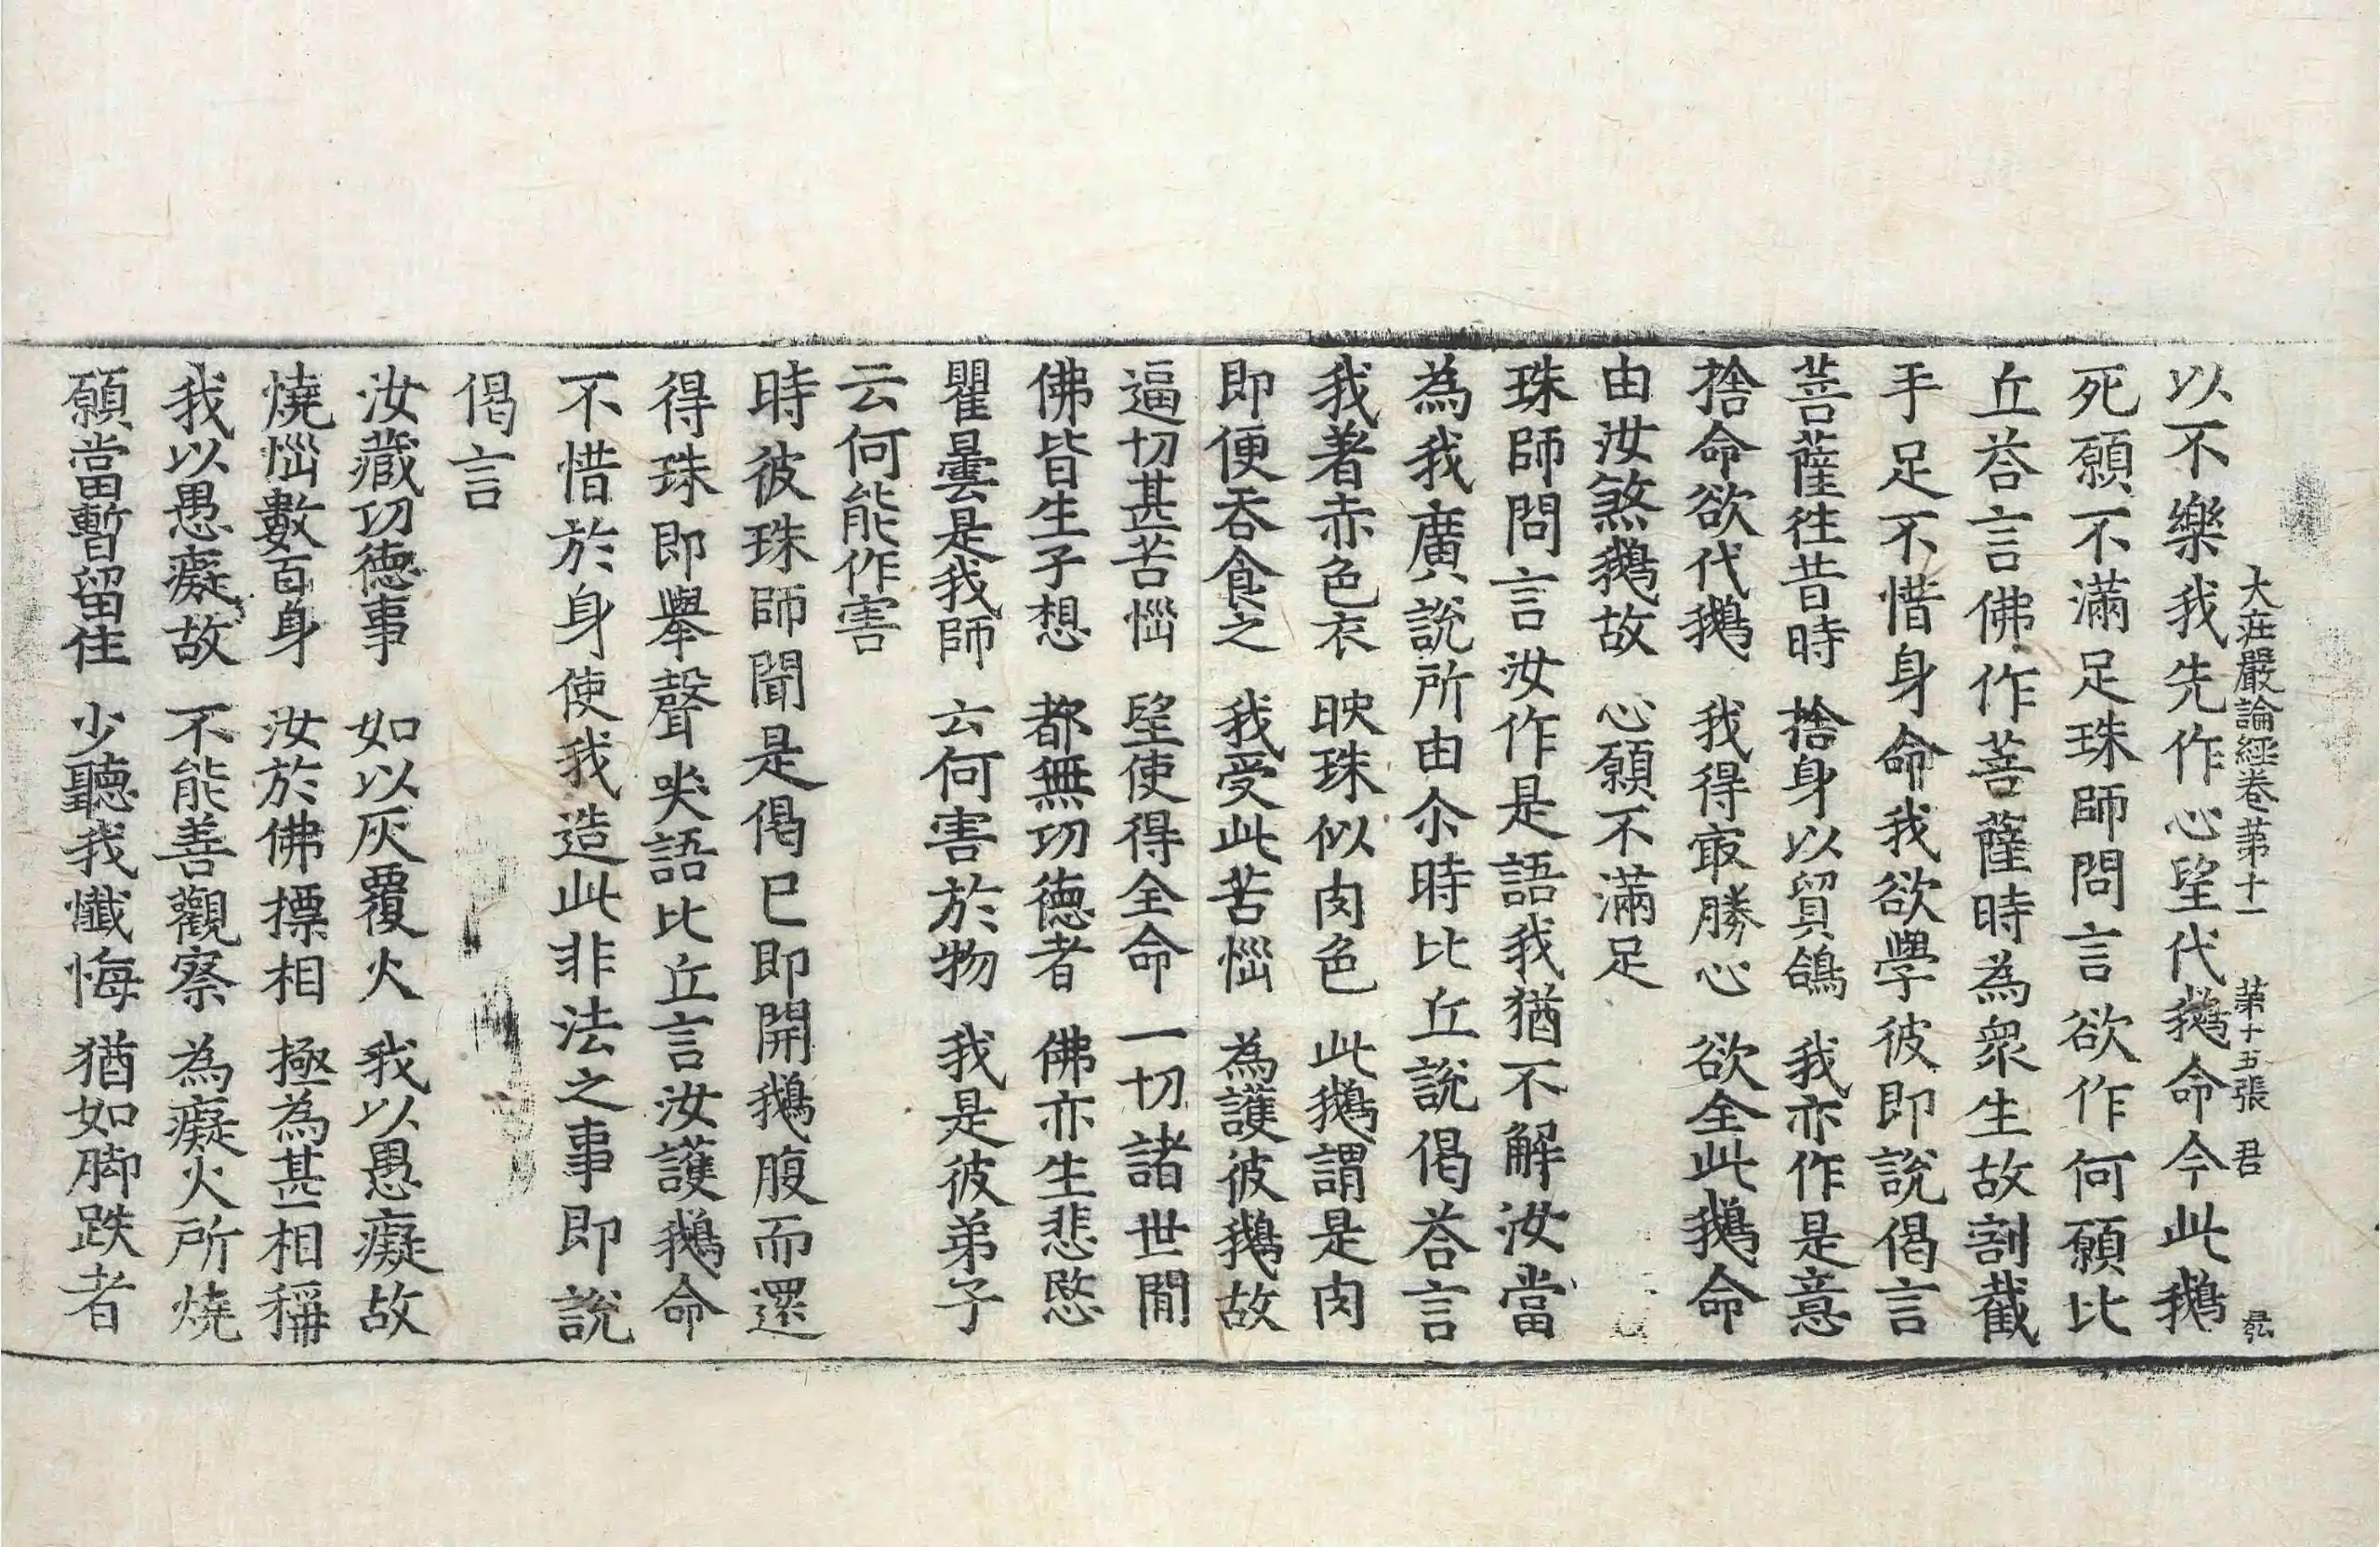 大莊嚴論經卷第十一 第十五張 君
以不樂我先作心望代鵝命今此鵝
死願不滿足珠師問言欲作何願比
丘荅言佛作菩薩時為衆生故割截
手足不惜身命我欲學彼即說偈言
菩薩往昔時 捨身以貿鴿 我亦作是意
捨命欲代鵝 我得㝡勝心 欲全此鵝命
由汝煞鵝故 心願不滿足
珠師問言汝作是語我猶不解汝當
為我廣說所由尒時比丘說偈荅言
我著赤色衣 映珠似肉色 此鵝謂是肉
即便吞食之 我受此苦惱 為護彼鵝故
逼切甚苦惱 望使得全命 一切諸世間
佛皆生子想 都無功德者 佛亦生悲愍
瞿曇是我師 云何害於物 我是彼弟子
云何能作害
時彼珠師聞是偈已即開鵝腹而還
得珠即舉聲哭語比丘言汝護鵝命
不惜於身使我造此非法之事即說
偈言
汝藏功德事 如以灰覆火 我以愚癡故
燒惱數百身 汝於佛摽相 極為甚相稱
我以愚癡故 不能善觀察 為癡火所燒
願當暫留住 少聽我懺悔 猶如脚跌者